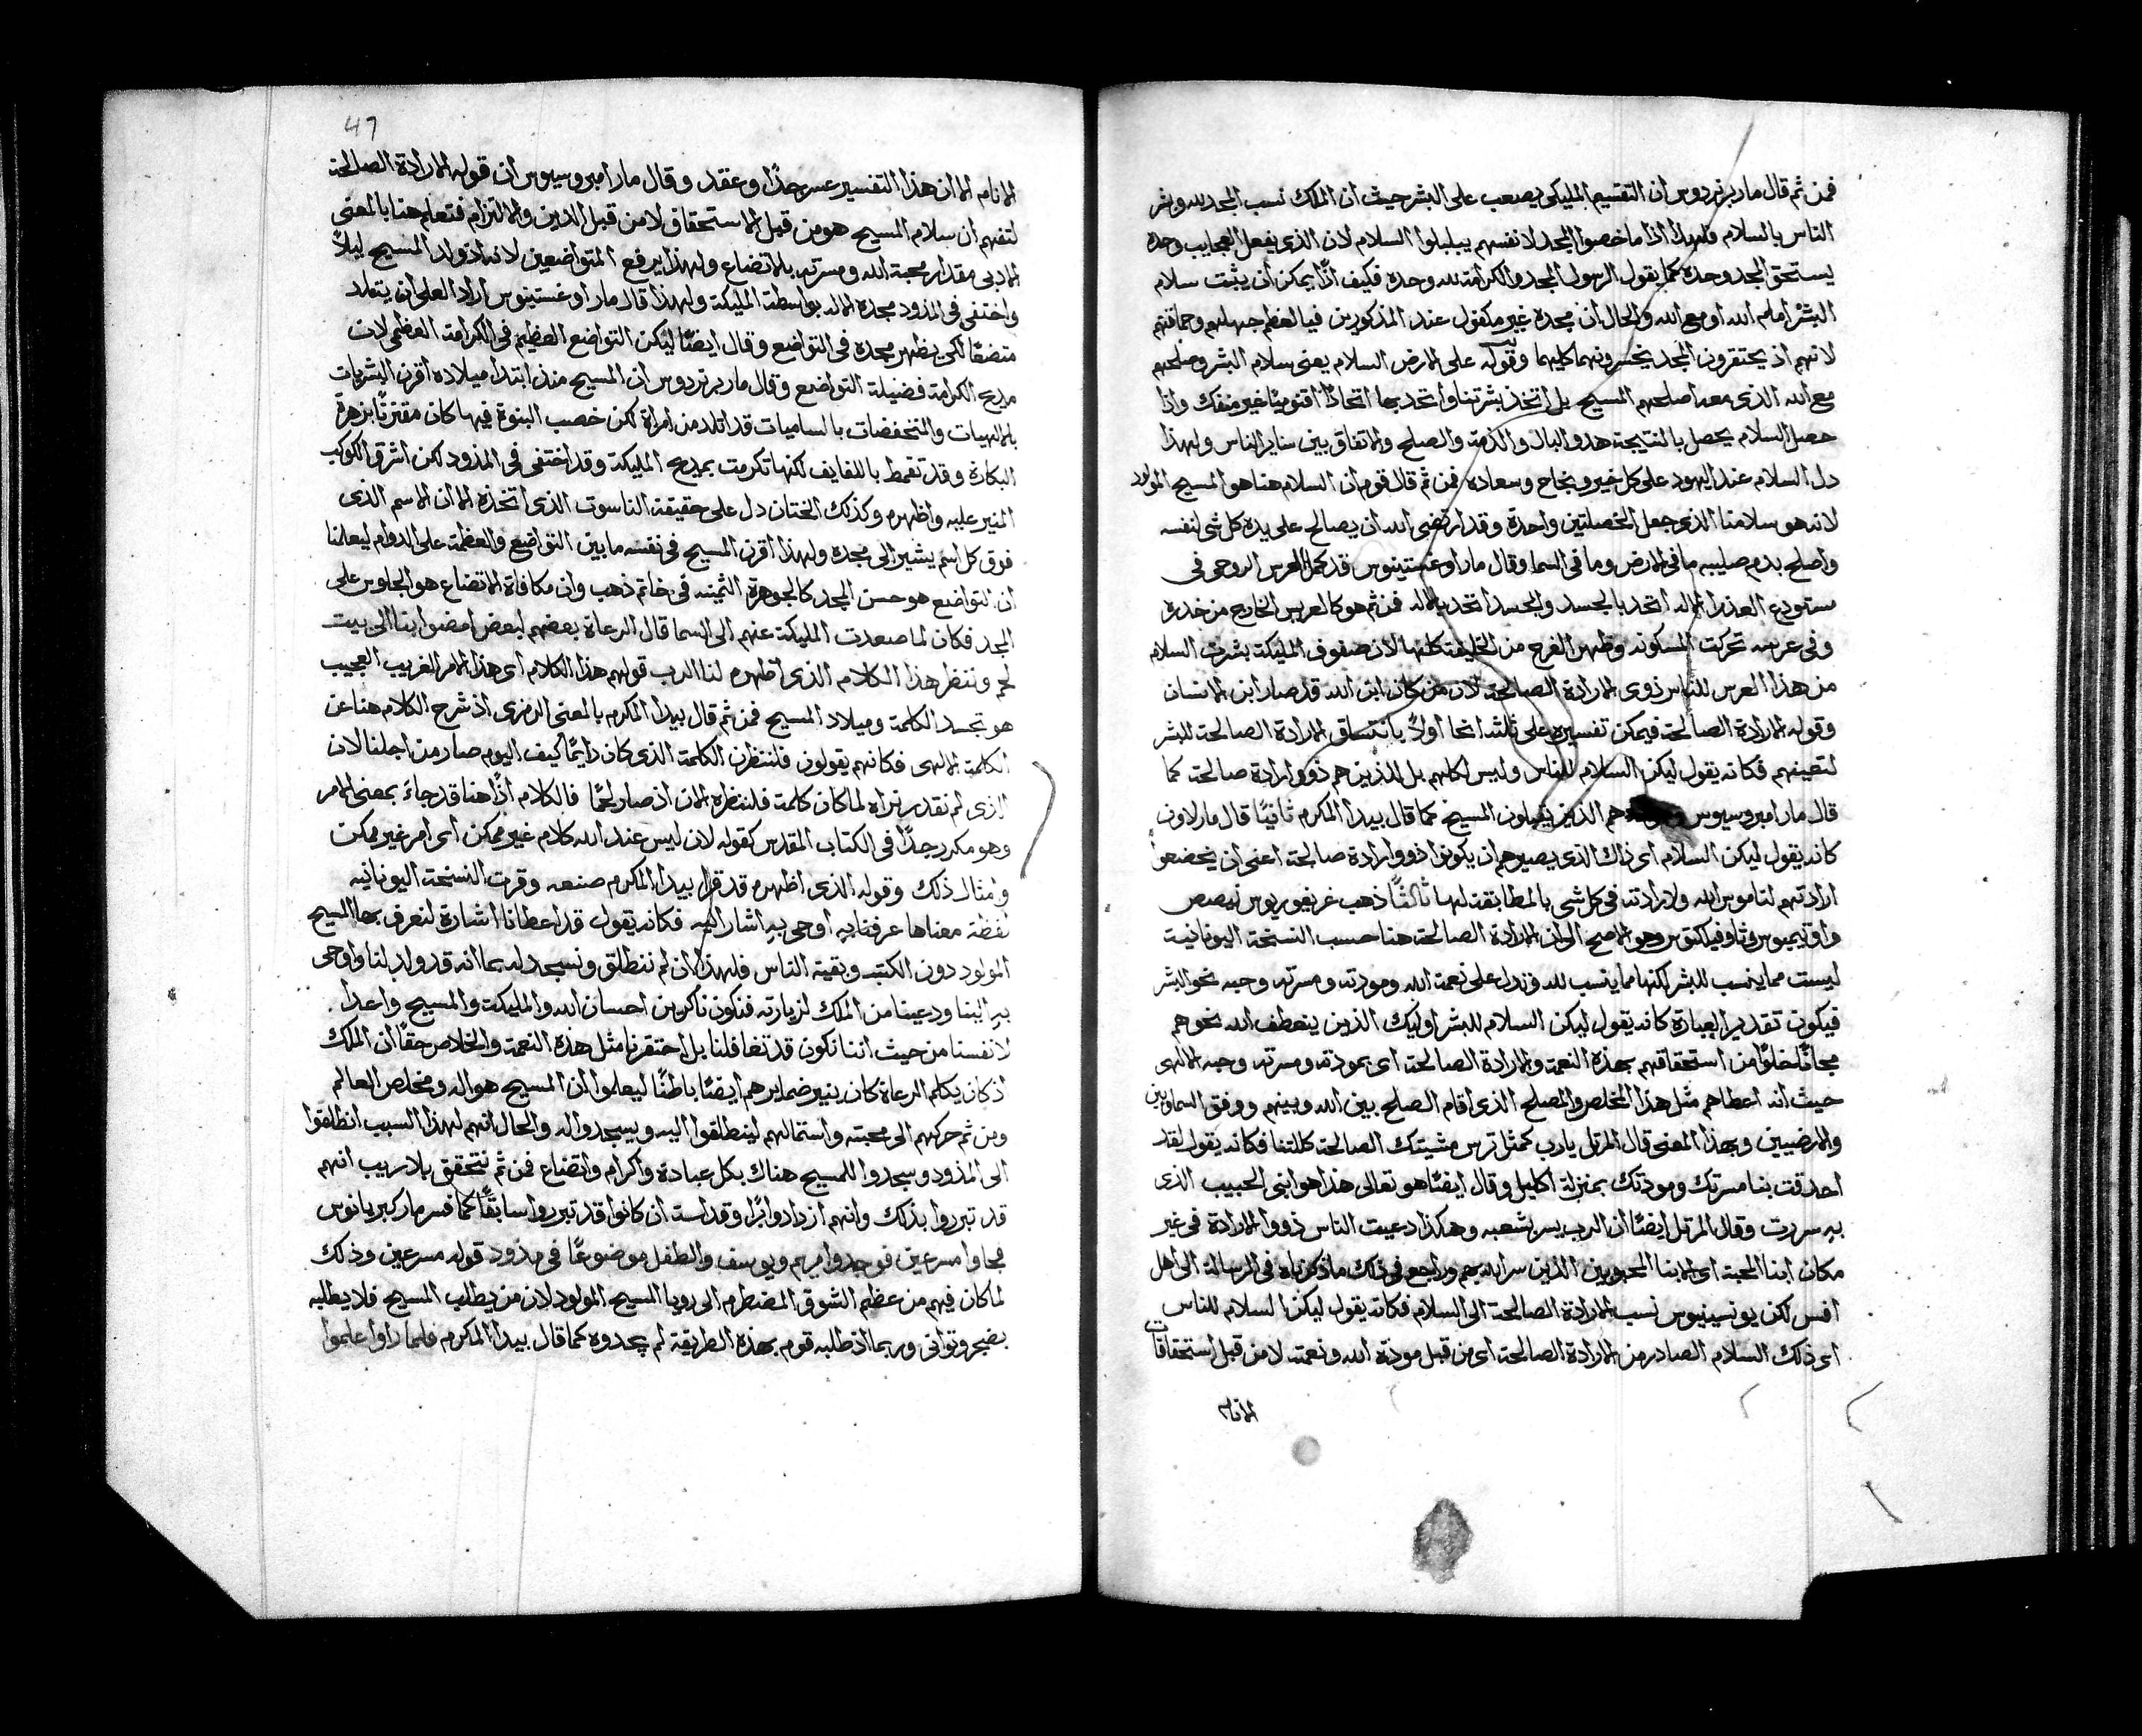 فمن ثم قال مار برنردوس ان التقسيم المليكي يصعب على البشر حيث ان الملك نسب المجد لله وبشر
الناس بالسلام فلهذا اذا ما خصوا المجد لانفسهم يبلبلوا السلام لان الذي يفعل العجايب وحده
يستحق المجد وحده كما يقول الرسول المجد والكرامة لله وحده فكيف اذًا يمكن ان يثبت سلام
البشر امام الله او مع الله والحال ان مجده غير مكفول عند المذكورين فيا لعظم جهلهم وحماقتهم
لانهم اذ يحتقرون المجد يخسرونهما كليهما وقوله على الارض السلام يعني سلام البشر وصلحهم
مع الله الذي معه اصلحهم المسيح بل اتخذ بشرتنا واتحد بها اتحادًا اقنوميًا غير منفك واذا
حصل السلام يحصل بالنتيجة هدو البال والذمة والصلح والاتفاق بين ساير الناس ولهذا
دل السلام عند اليهود على كل خير ونجاح وسعاده فمن ثم قال قوم ان السلام هنا هو المسيح المولود
لانه هو سلامنا الذي جعل الخصلتين واحدة وقد ارتضى الله ان يصالح على يده كل شي لنفسه
واصلح بدم صليبه ما في الارض وما في السما وقال مار اوغستينوس قد كمل العرس الروحي في
مستودع العذرا الاله اتحد بالجسد والجسد اتحد بالاله فمن ثم هو كالعريس الخارج من خدره
وفي عرسه تحركت المسكونه وظهر الفرح من الخليقة كلها لان صفوف المليكة بشرت السلام
من هذا العرس للناس ذوى الارادة الصالحة لان من كان ابن الله قد صار ابن الانسان
وقوله الارادة الصالحة فيمكن تفسيره على ثلثة انحا اولًا بانتساق الارادة الصالحة للبشر
لتعينهم فكانه يقول ليكن السلام للناس وليس لكلهم بل للذين هم ذوو ارادة صالحة كما
قال مار امبروسيوس هم الذين يقبلون المسيح كما قال بيدا المكرم ثانيًا قال مار لاون
كانه يقول ليكن السلام اى ذاك الذي يصيرهم ان يكونوا ذوو ارادة صالحة اعني ان يخضعوا
ارادتهم لناموس الله ولارادته في كل شي بالمطابقة لها ثالثًا ذهب غريغوريوس نيصص
واوتيميوس وثاوفيلكتوس وهو الاصح الى ان الارادة الصالحة هنا حسب النسخة اليونانية
ليست مما ينسب للبشر لكنها مما ينسب لله وتدل على نعمة الله ومودته ومسرته وحبه نحو البشر
فيكون تقدير العبارة كانه يقول ليكن السلام للبشر اوليك الذين ينعطف الله نحوهم
مجانًا خلوًا من استحقاقهم بهذه النعمة والارادة الصالحة اى بمودته ومسرته وحبه الالهي
حيث انه اعطاهم مثل هذا المخلص والمصلح الذي اقام الصلح بين الله وبينهم ووفق السماويين
والارضيين وبهذا المعنى قال المرتل يارب كمثل ترس مشيتك الصالحة كللتنا فكانه يقول لقد
احدقت بنا مسرتك ومودتك بمنزلة اكليل وقال ايضًا هو تعالى هذا هو ابني الحبيب الذي
به سررت وقال المرتل ايضًا ان الرب يسر بشعبه وهكذا دعيت الناس ذوو الارادة في غير
مكان ابنا المحبة اى الابنا المحبوبين الذين سر الله بهم وراجع في ذلك ما ذكرناه في الرسالة الى اهل
افسس لكن يونسينيوس نسب الارادة الصالحة الى السلام فكانه يقول ليكن السلام للناس
اى ذلك السلام الصادر من الارادة الصالحة اى من قبل مودة الله ونعمته لا من قبل استحقاقات
الانام
47
الانام الا ان هذا التفسير عسر جدًا وعقد وقال مار امبروسيوس ان قوله الارادة الصالحة
لتفهم ان سلام المسيح هو من قبل الاستحقاق لا من قبل الدين والالتزام فتعلم هنا بالمعنى
الادبي مقدار محبة الله ومسرته بالاتضاع ولهذا يرفع المتواضعين لانه اذ ولد المسيح ليلًا
واختفى في المذود مجده الاله بواسطة المليكة ولهذا قال مار اوغستينوس اراد العلي ان يتلد
متضعًا لكي يظهر مجده في التواضع وقال ايضًا ليكن التواضع العظيم في الكرامة العظمى لان
مديح الكرامة فضيلة التواضع وقال مار برنردوس ان المسيح منذ ابتدا ميلاده اقرن البشريات
بالالهيات والمنخفضات بالساميات قد اتلد من امراة لكن خصب البنوة فيها كان مقترنًا بزهرة
البكارة وقد تقمط باللفايف لكنها تكرمت بمديح المليكة وقد اختفى في المذود لكن اشرق الكوكب
المنير عليه واظهره وكذلك الختان دل على حقيقة الناسوت الذي اتخذه الا ان الاسم الذي
فوق كل اسم يشير الى مجده ولهذا اقرن المسيح في نفسه ما بين التواضع والعظمة على الدوام ليعلمنا
ان التواضع هو حسن المجد كالجوهرة الثمينه في خاتم ذهب وان مكافاة الاتضاع هو الجلوس على
المجد فكان لما صعدت المليكة عنهم الى السما قال الرعاة بعضهم لبعض امضوا بنا الى بيت
لحم وننظر هذا الكلام الذي اظهره لنا الرب قولهم هذا الكلام اى هذا الامر الغريب العجيب
هو تجسد الكلمة وميلاد المسيح فمن ثم قال بيدا المكرم بالمعنى الرمزي اذ شرح الكلام هنا عن
الكلمة الالهي فكانهم يقولون فلننظرن الكلمة الذي كان دايمًا كيف اليوم صار من اجلنا لان
الذي لم نقدر نراه لما كان كلمة فلننظره الان اذ صار لحمًا فالكلام اذًا هنا قد جاء بمعنى الامر
وهو مكرر جدًا في الكتاب المقدس كقوله لان ليس عند الله كلام غير ممكن اى امر غير ممكن
وامثال ذلك وقوله الذي اظهره قد قرا بيدا المكرم صنعه وقرت النسخة اليونانيه
لفظة معناها عرفنا به اوحى به اشار اليه فكانه يقول قد اعطانا اشارة لنعرف بها المسيح
المولود دون الكتبه وبقية الناس فلهذا ان لم ننطلق ونسجد له بما انه قد ولد لنا واوحى
به الينا ودعينا من الملك لزيارته فنكون ناكرين احسان الله والمليكة والمسيح واعدا
لانفسنا من حيث اننا نكون قد تغافلنا بل احتقرنا مثل هذه النعمة والخلاص حقًا ان الملك
اذ كان يكلم الرعاة كان ينير ضمايرهم ايضًا باطنًا ليعلموا ان المسيح هو اله ومخلص العالم
ومن ثم حركهم الى محبته واستمالهم لينطلقوا اليه ويسجدوا له والحال انهم لهذا السبب انطلقوا
الى المذود وسجدوا للمسيح هناك بكل عبادة واكرام واتضاع فمن ثم نتحقق بلا ريب انهم
قد تبرروا بذلك وانهم ازدادوا برًا وقداسة ان كانوا قد تبرروا سابقًا كما فسر مار كبريانوس
فجاوا مسرعين فوجدوا مريم ويوسف والطفل موضوعًا في مذود قوله مسرعين وذلك
لما كان فيهم من عظم الشوق المضطرم الى رويا المسيح المولود لان من يطلب المسيح فلا يطلبه
بضجر وتوانى وربما اذ طلبه قوم بهذه الطريقة لم يجدوه كما قال بيدا المكرم فلما راوا علموا